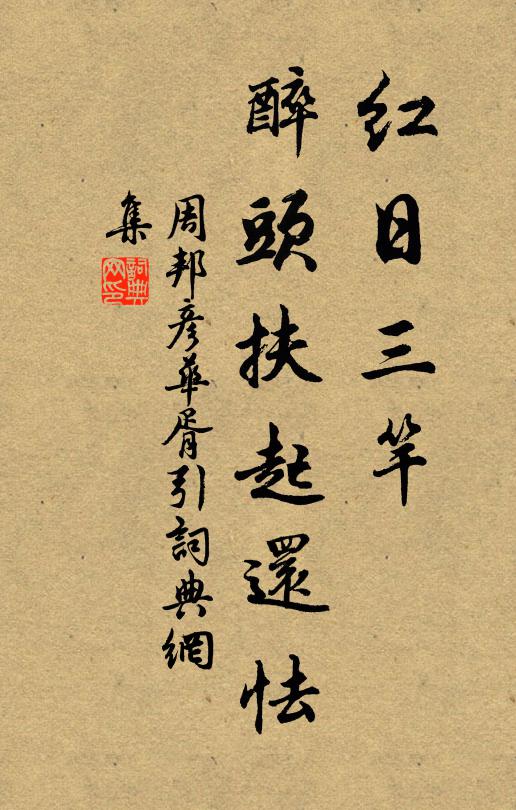 紅日三竿
醉頭扶起還怯
周邦彥華胥引詞典網
集
詞典
网印